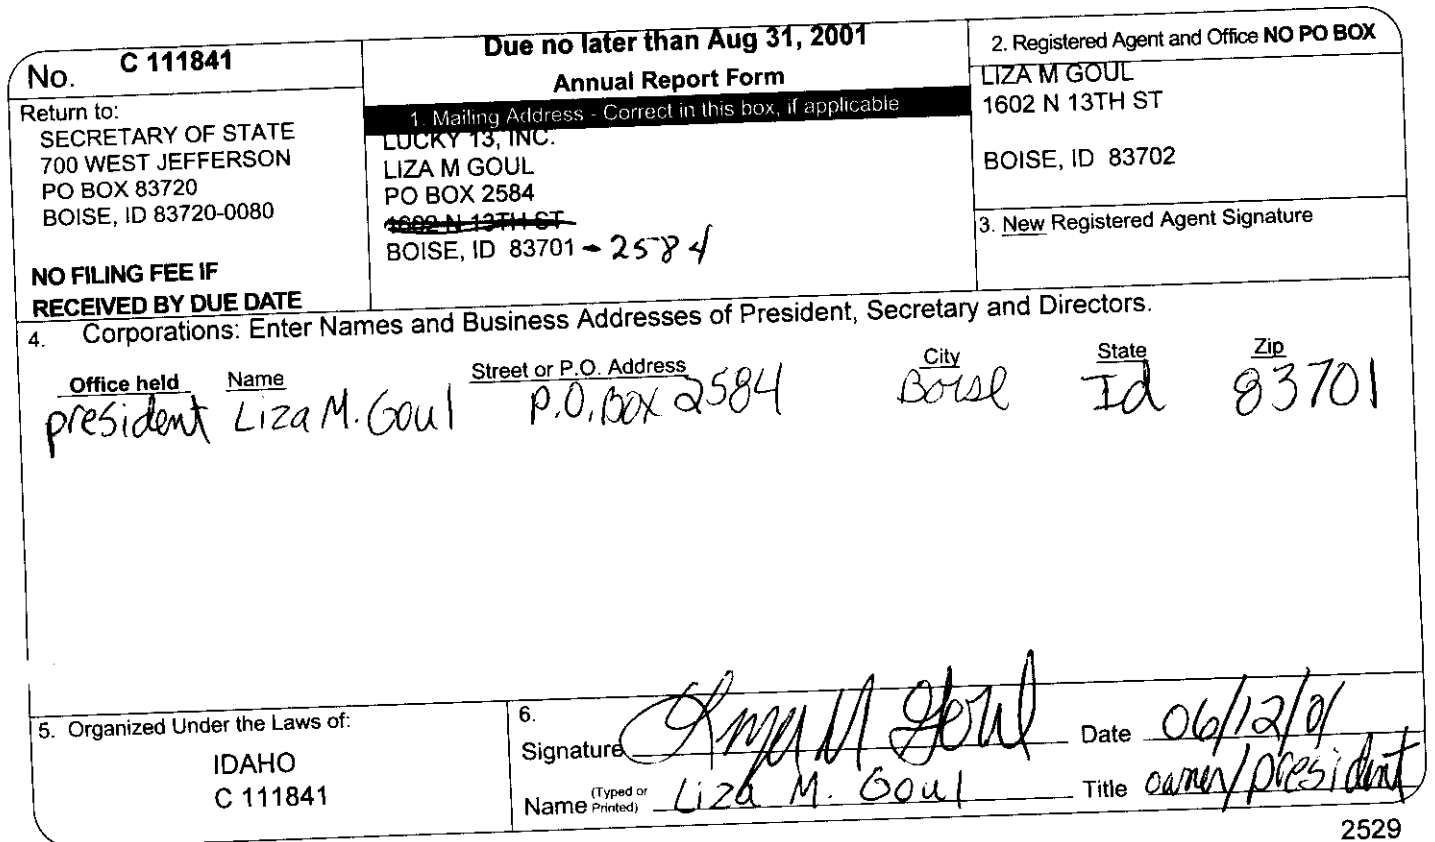 No. C 111841
Return to:
SECRETARY OF STATE
700 WEST JEFFERSON
PO BOX 83720
BOISE, ID 83720-0080
NO FILING FEE IF
RECEIVED BY DUE DATE
Due no later than Aug 31, 2001
Annual Report Form
1. Mailing Address - Correct in this box, if applicable
LUCKY 13, INC.
LIZA M GOUL
PO BOX 2584
1602 N 13TH ST
BOISE, ID 83701 - 2584
2. Registered Agent and Office NO PO BOX
LIZA M GOUL
1602 N 13TH ST
BOISE, ID 83702
3. New Registered Agent Signature
4. Corporations: Enter Names and Business Addresses of President, Secretary and Directors.
Office held Name Street or P.O. Address City State Zip
president Liza M. Goul P.O. Box 2584 Boise Id 83701
5. Organized Under the Laws of:
IDAHO
C 111841
6.
Signature Liza M Goul Date 06/12/01
Name (Typed or Printed) Liza M. Goul Title owner/president
2529